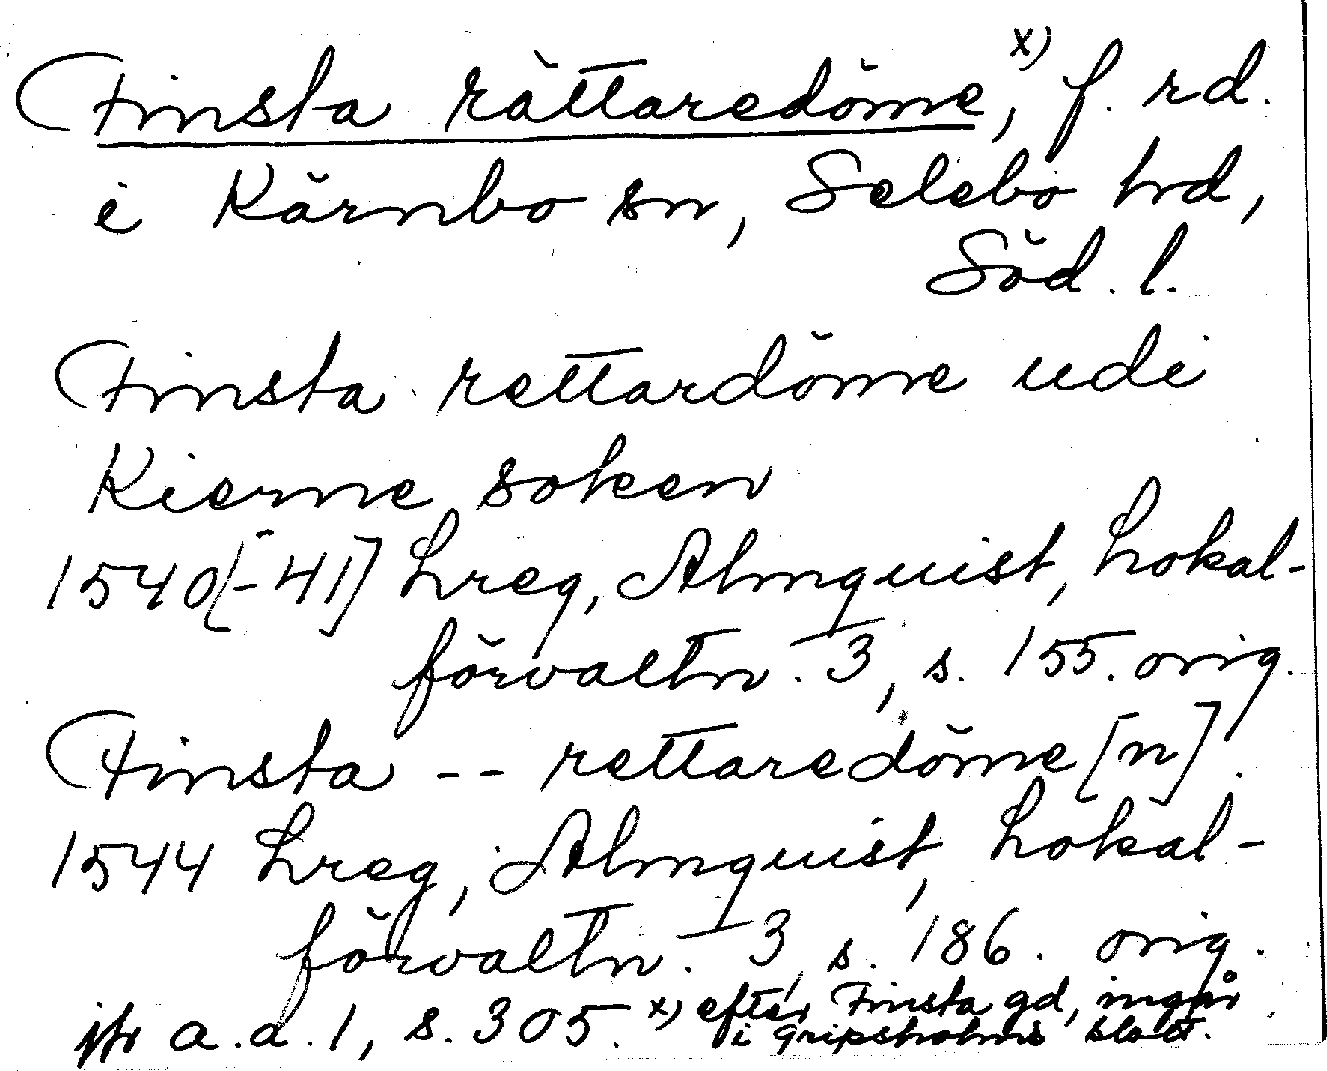 Finsta rättaredöme,ˣ⁾ f. rd.
i Kärnbo sn, Selebo hrd,
Söd. l.
Finsta rettardöme udi
Kierne soken
1540[-41] Lreg, Almquist, Lokal-
förvaltn. 3, s. 155. orig.
Finsta -- rettaredöme[n].
1544 Lreg, Almquist, Lokal-
förvaltn. 3, s. 186. orig.
jfr a.a. 1, s. 305. x) efter Finsta gd, ingår
i Gripsholms slott.